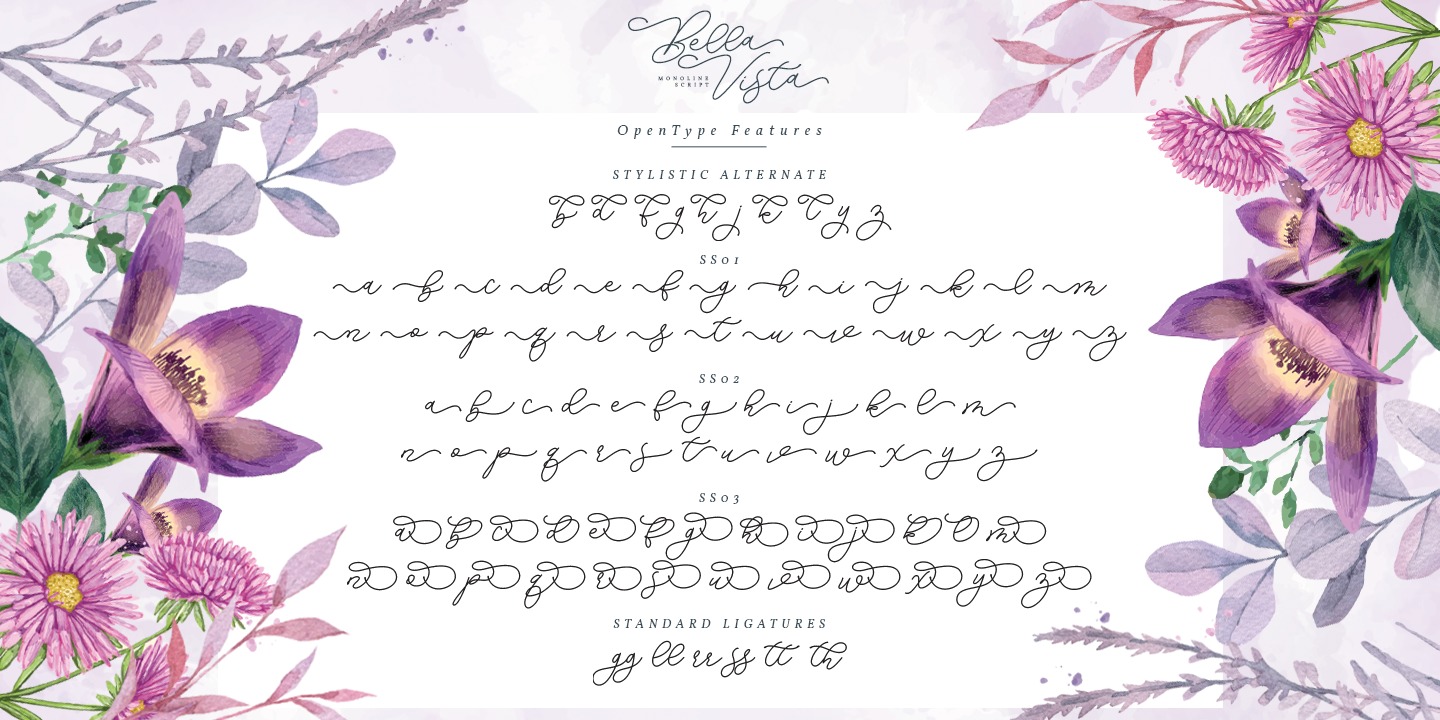 Bella
Vista
MONOLINE
SCRIPT
OpenType Features
STYLISTIC ALTERNATE
b d f g h j k l y z
SS01
a b c d e f g h i j k l m
n o p q r s t u v w x y z
SS02
a b c d e f g h i j k l m
n o p q r s t u v w x y z
SS03
a b c d e f g h i j k l m
n o p q r s u v w x y z
STANDARD LIGATURES
gg ll rr ss tt th